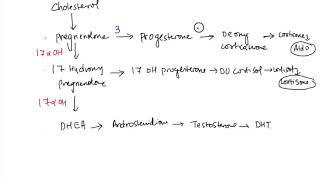 Cholesterol
pregnendone 3 Progesterone Deoxy corticoxone
Aldo
17αOH
17 Hydroxy pregnendone 17 OH progesterone DO cortisol cortisol
cortisone
17αOH
DHEA Androstendione Testosterone DHT